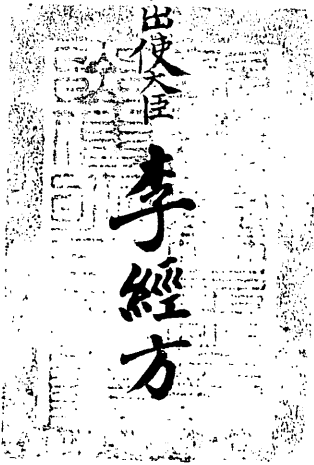 出使大臣
李經方